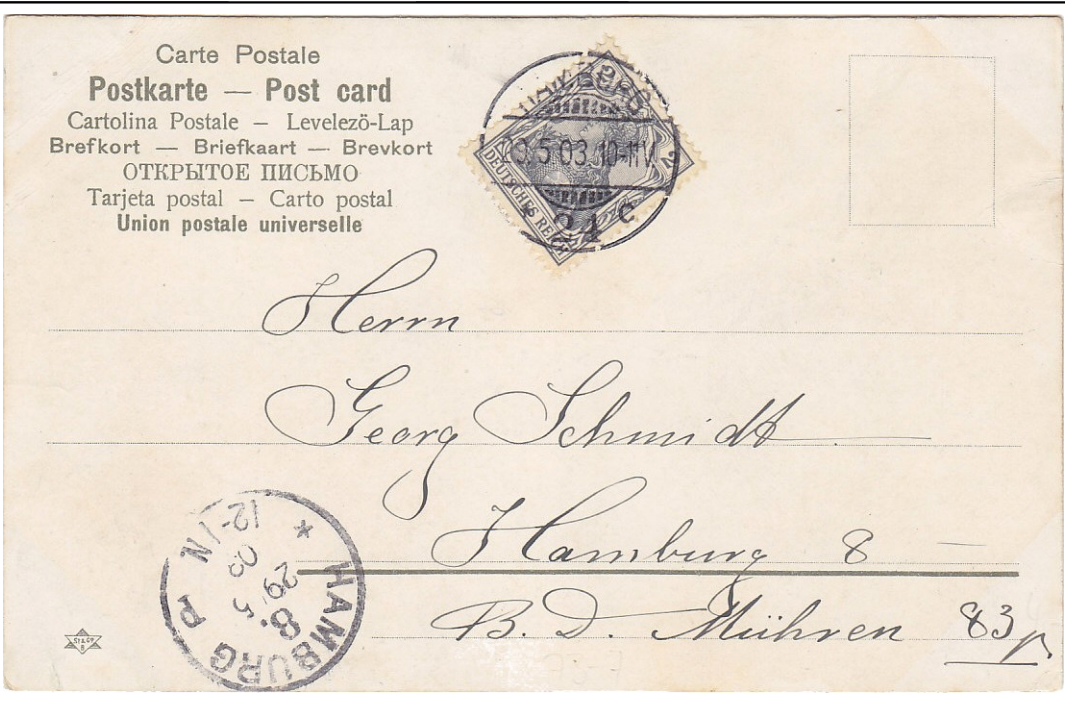 Carte Postale
Postkarte — Post card
Cartolina Postale – Levelező-Lap
Brefkort — Briefkaart — Brevkort
ОТКРЫТОЕ ПИСЬМО
Tarjeta postal – Carto postal
Union postale universelle
HAMBURG
29.5.03.10-11V.
2
DEUTSCHES REICH
2
* 21 c
Herrn
Georg Schmidt
Hamburg 8
B. D. Mühren 83 p.
* HAMBURG P
8.
29/5
03
12-1N